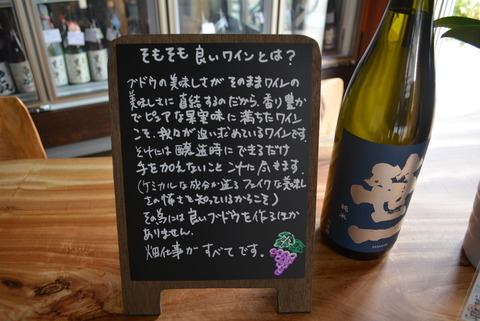 そもそも良いワインとは?
ブドウの美味しさがそのままワインの
美味しさに直結するのだから、香り豊か
でピュアな果実味に満ちたワイン
こそ、我々が追い求めているワインです。
それには醸造時にできるだけ
手を加えないことこれに尽きます。
(ケミカルな成分が造るフェイクな美味し
さの怖さを知っているからこそ)
その為には良いブドウを作るほか
ありません。
畑仕事がすべてです。
純米